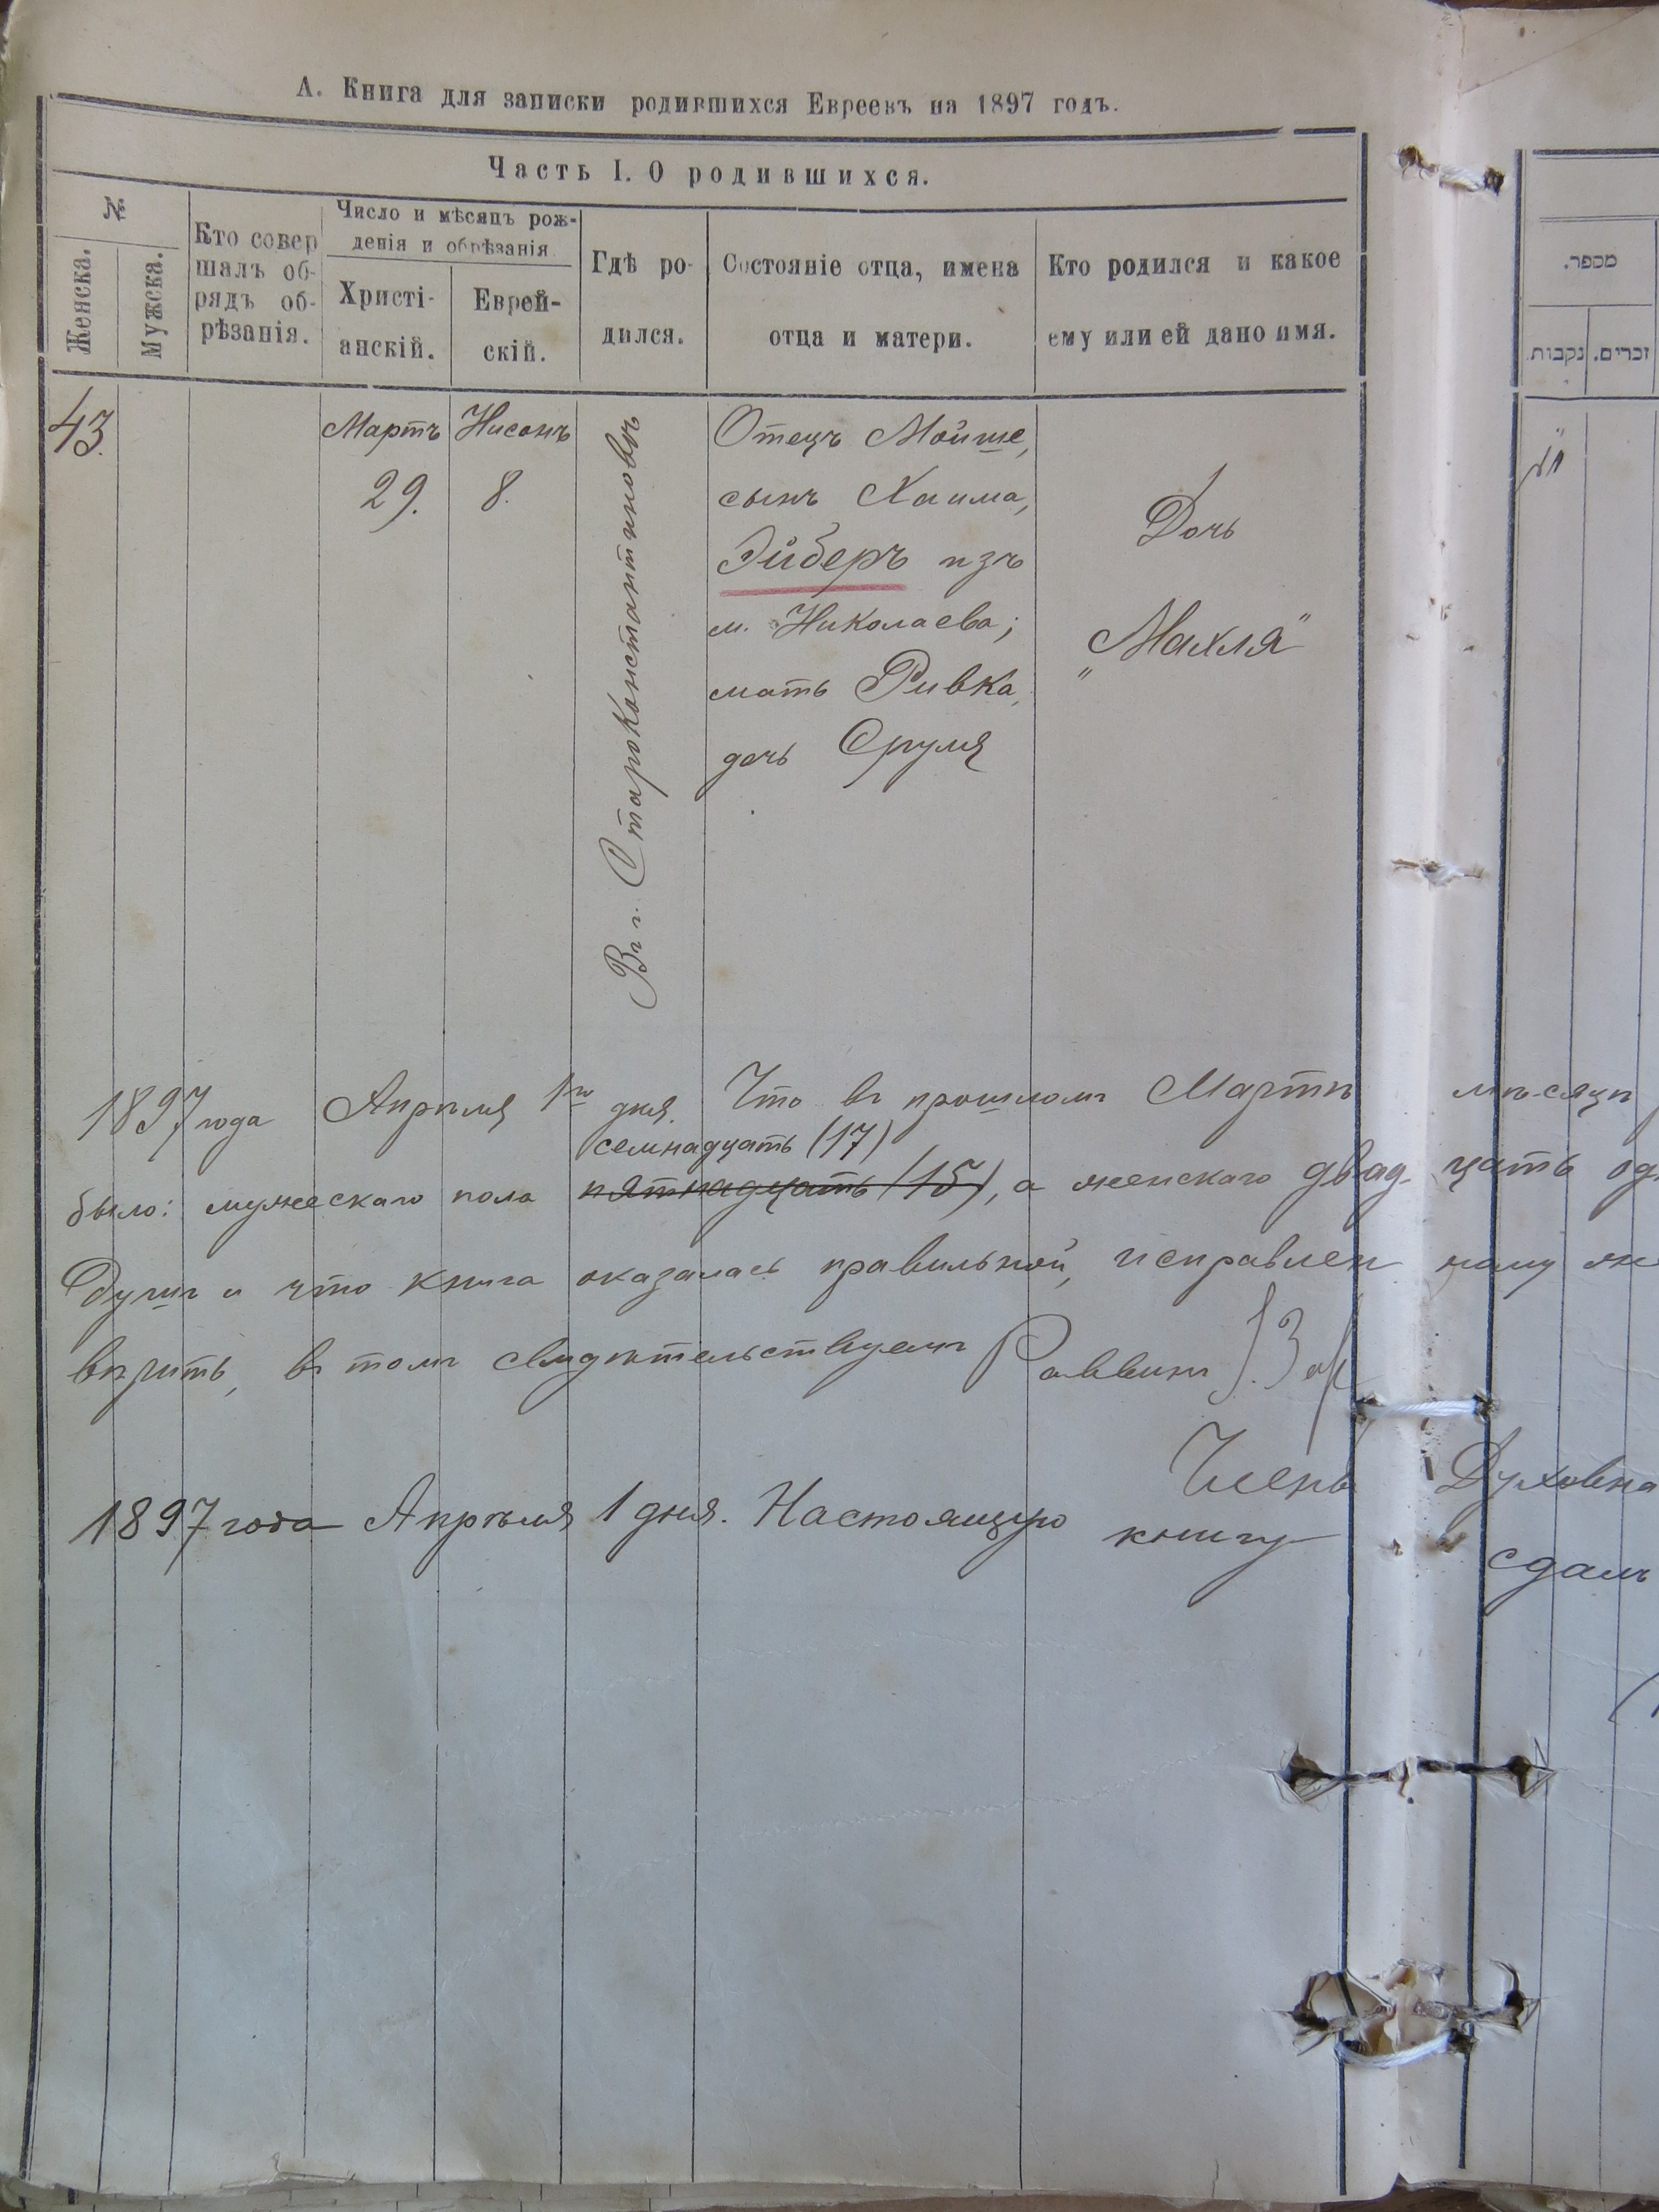 А. Книга для записки родившихся Евреевъ на 1897 годъ.
Часть I. О родившихся.
№
Женска.
Мужска.
Кто совер
шалъ об-
рядъ об-
рѣзанія.
Число и мѣсяцъ рож-
денія и обрѣзанія
Христі-
анскій.
Еврей-
скій.
Гдѣ ро-
дился.
Состояніе отца, имена
отца и матери.
Кто родился и какое
ему или ей дано имя.
מספר.
נקבות.
זכרים.
43.
Мартъ
29.
Нисонъ
8.
Въ г. Староконстантиновѣ
Отецъ Мойше,
сынъ Хаима,
Эйберъ изъ
м. Николаева;
мать Ривка,
дочь Сруля
Дочь
„Махля"
1897 года Апрѣля 1го дня. Что въ прошломъ Мартѣ мѣсяцѣ
семнадцать (17)
было: мужескаго пола пятнадцать (15), а женскаго двад-цать
Душъ и что книга оказалась правильной, исправлен
вѣрить, въ томъ свидѣтельствуемъ Раввинъ
Членъ Духовна
1897 года Апрѣля 1 дня. Настоящую книгу сдалъ